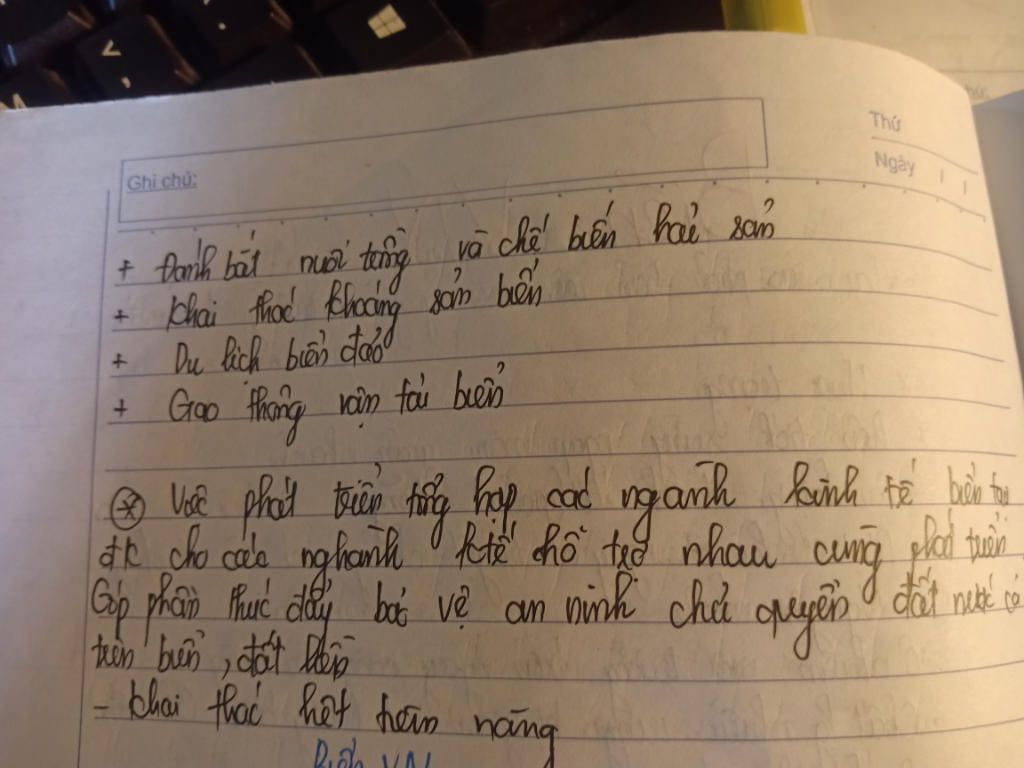 Thứ
Ngày
Ghi chú:
+ Đánh bắt nuôi trồng và chế biến hải sản
+ Khai thác khoáng sản biển
+ Du lịch biển đảo
+ Giao thông vận tải biển
* Việc phát triển tổng hợp các nganh kinh tế biển tạo
đk cho các nghanh ktế hỗ trợ nhau cùng phát triển
Góp phần thúc đẩy bảo vệ an ninh chủ quyền đất nước cả
trên biển, đất liền
- Khai thác hết tiềm năng
Biển VN